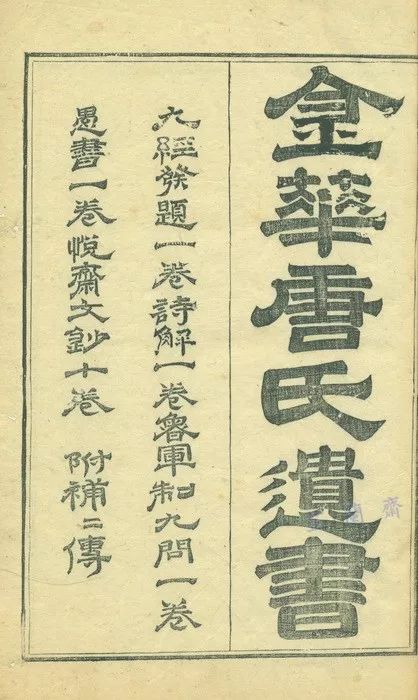 金華唐氏遺書
九經發題一卷詩解一卷魯軍制九問一卷
愚書一卷悅齋文鈔十卷 附補二傳